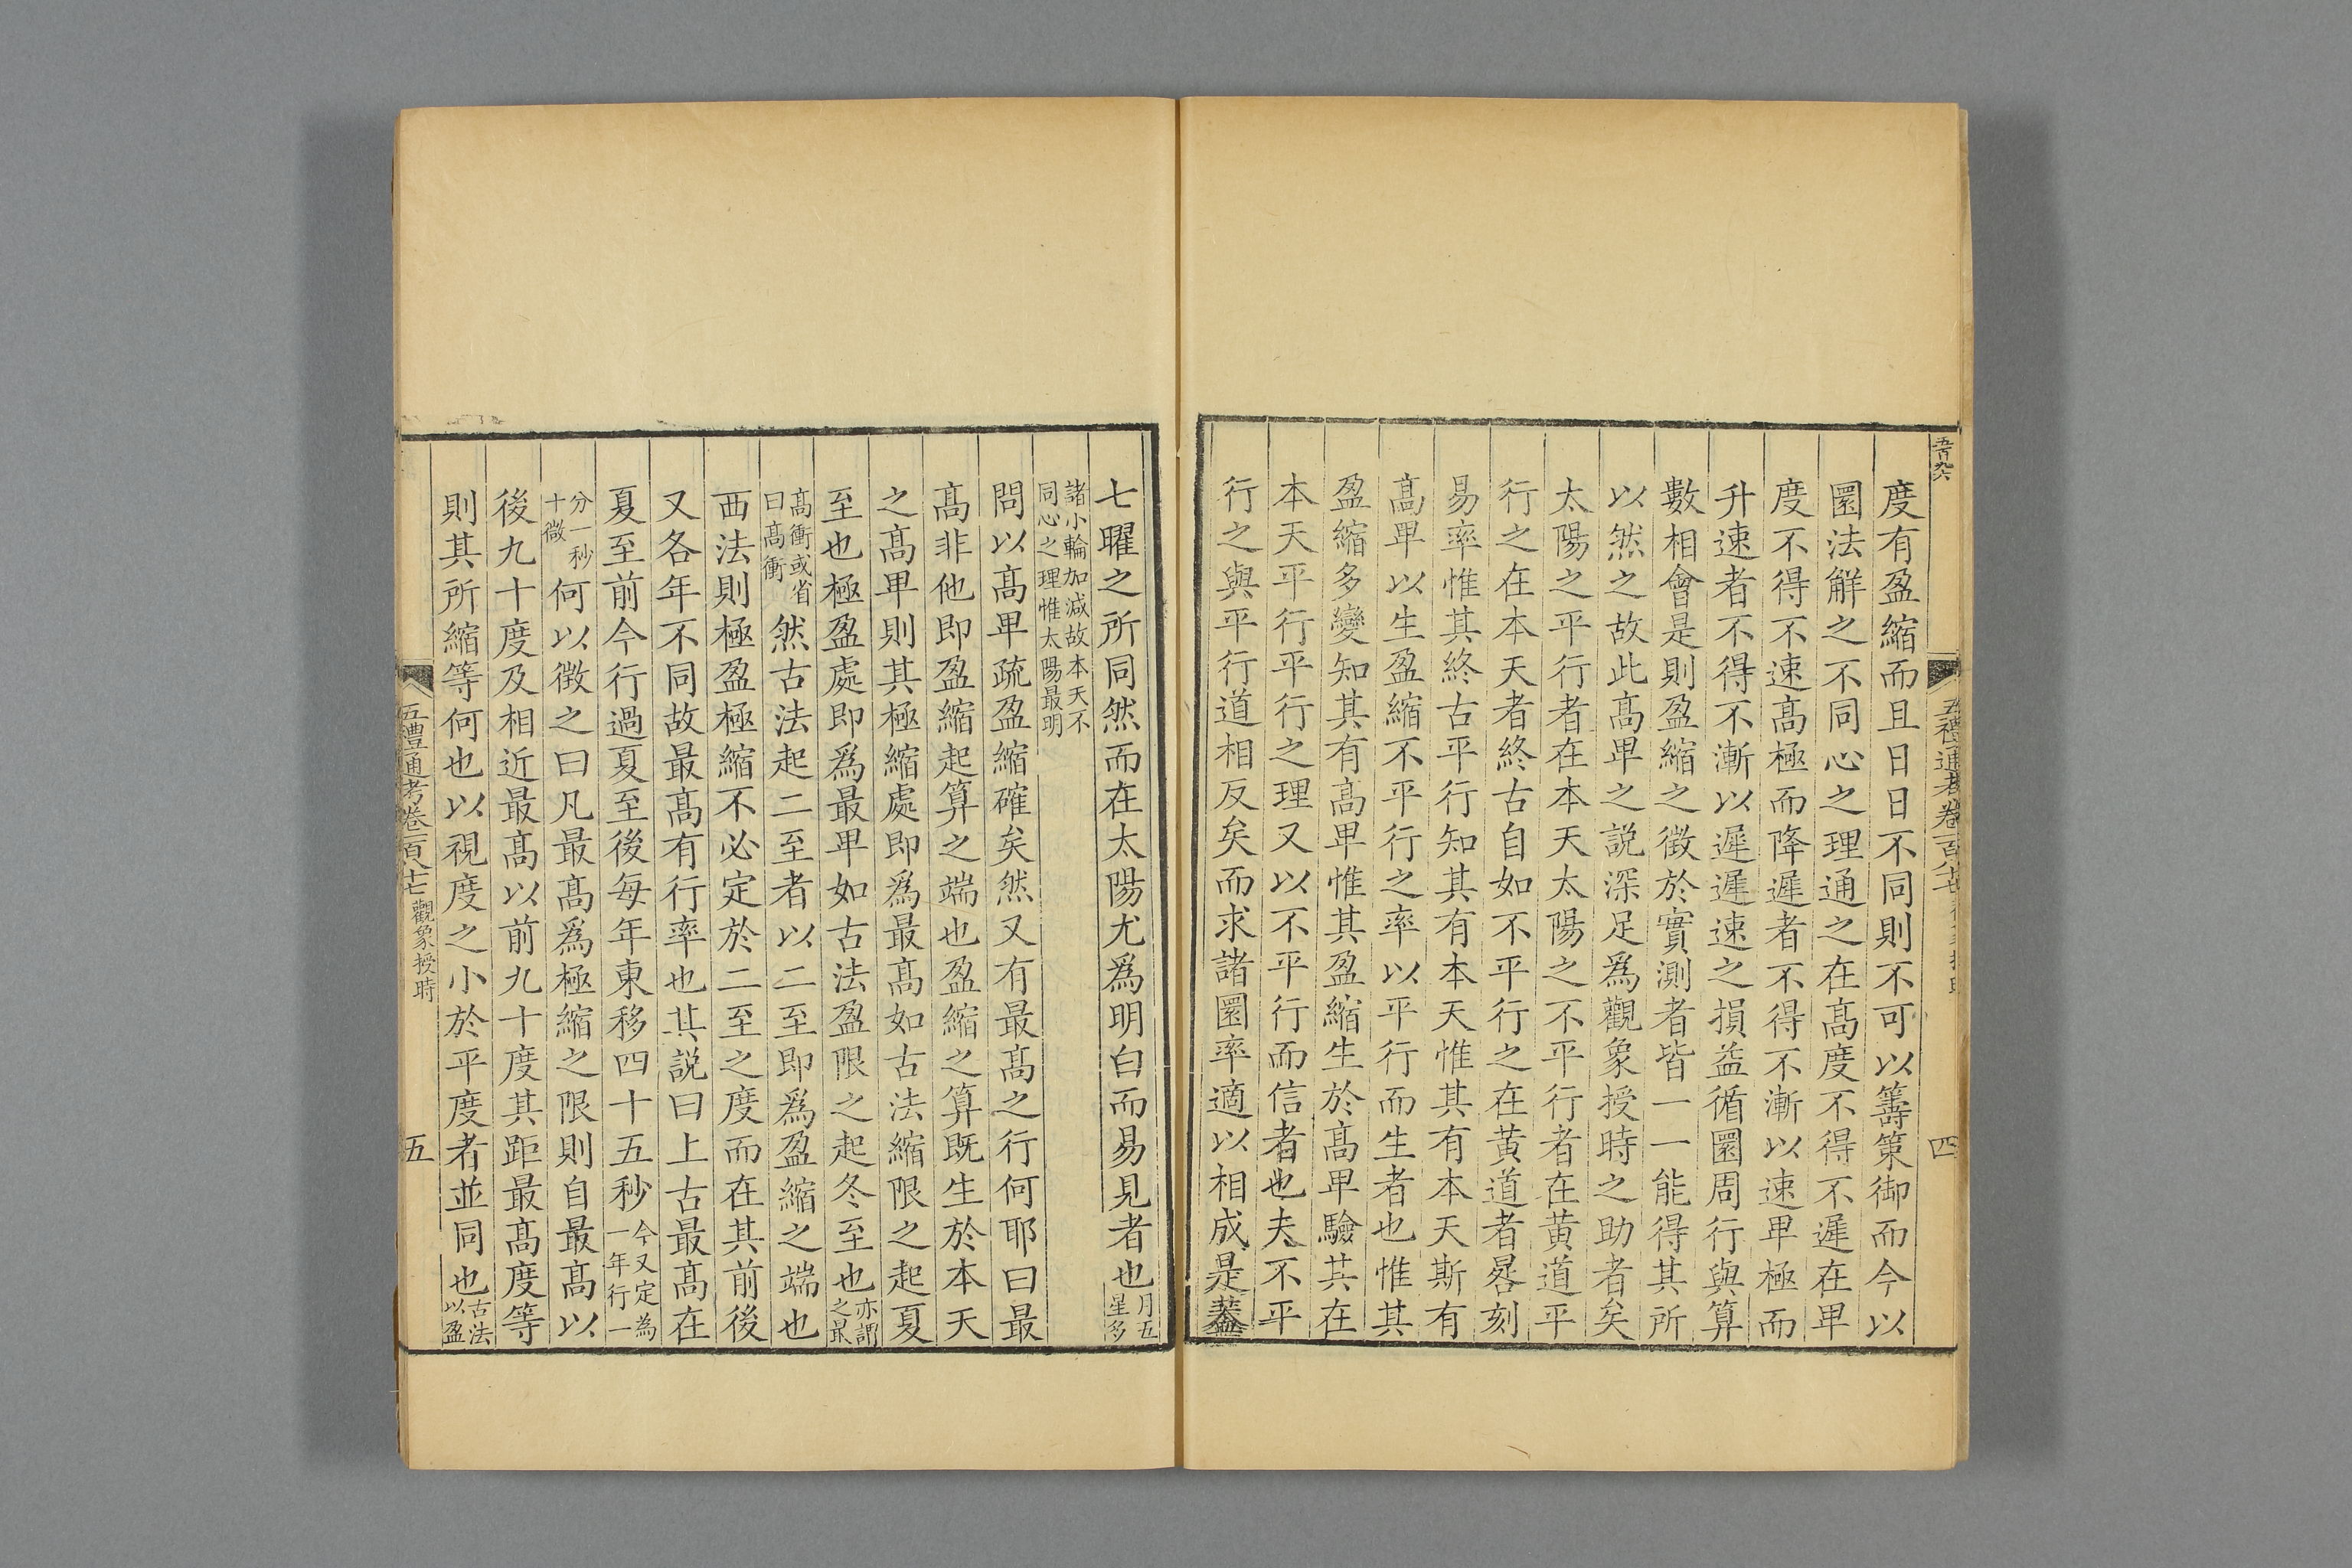 五禮通考卷一百八十七
四
度有盈縮而且日日不同則不可以籌策御而今以
圜法解之不同心之理通之在髙度不得不遲在卑
度不得不速髙極而降遲者不得不漸以速卑極而
升速者不得不漸以遲遲速之損益循圜周行與算
數相會是則盈縮之徴於實測者皆一一能得其所
以然之故此髙卑之説深足爲觀象授時之助者矣
太陽之平行者在本天太陽之不平行者在黄道平
行之在本天者終古自如不平行之在黄道者晷刻
易率惟其終古平行知其有本天惟其有本天斯有
髙卑以生盈縮不平行之率以平行而生者也惟其
盈縮多變知其有髙卑惟其盈縮生於髙卑驗其在
本天平行平行之理又以不平行而信者也夫不平
行之與平行道相反矣而求諸圜率適以相成是葢
七曜之所同然而在太陽尤爲明白而易見者也月五
星多
諸小輪加减故本天不
同心之理惟太陽最明
問以髙卑疏盈縮確矣然又有最髙之行何耶曰最
髙非他即盈縮起算之端也盈縮之算既生於本天
之髙卑則其極縮處即爲最髙如古法縮限之起夏
至也極盈處即爲最卑如古法盈限之起冬至也亦謂
之最
髙衝或省
曰髙衝然古法起二至者以二至即爲盈縮之端也
西法則極盈極縮不必定於二至之度而在其前後
又各年不同故最髙有行率也其説曰上古最髙在
夏至前今行過夏至後每年東移四十五秒今又定為
一年行一
分一秒
十微何以徴之曰凡最髙爲極縮之限則自最髙以
後九十度及相近最髙以前九十度其距最髙度等
則其所縮等何也以視度之小於平度者並同也古法
以盈
五禮通考卷一百八十七 觀象授時
五